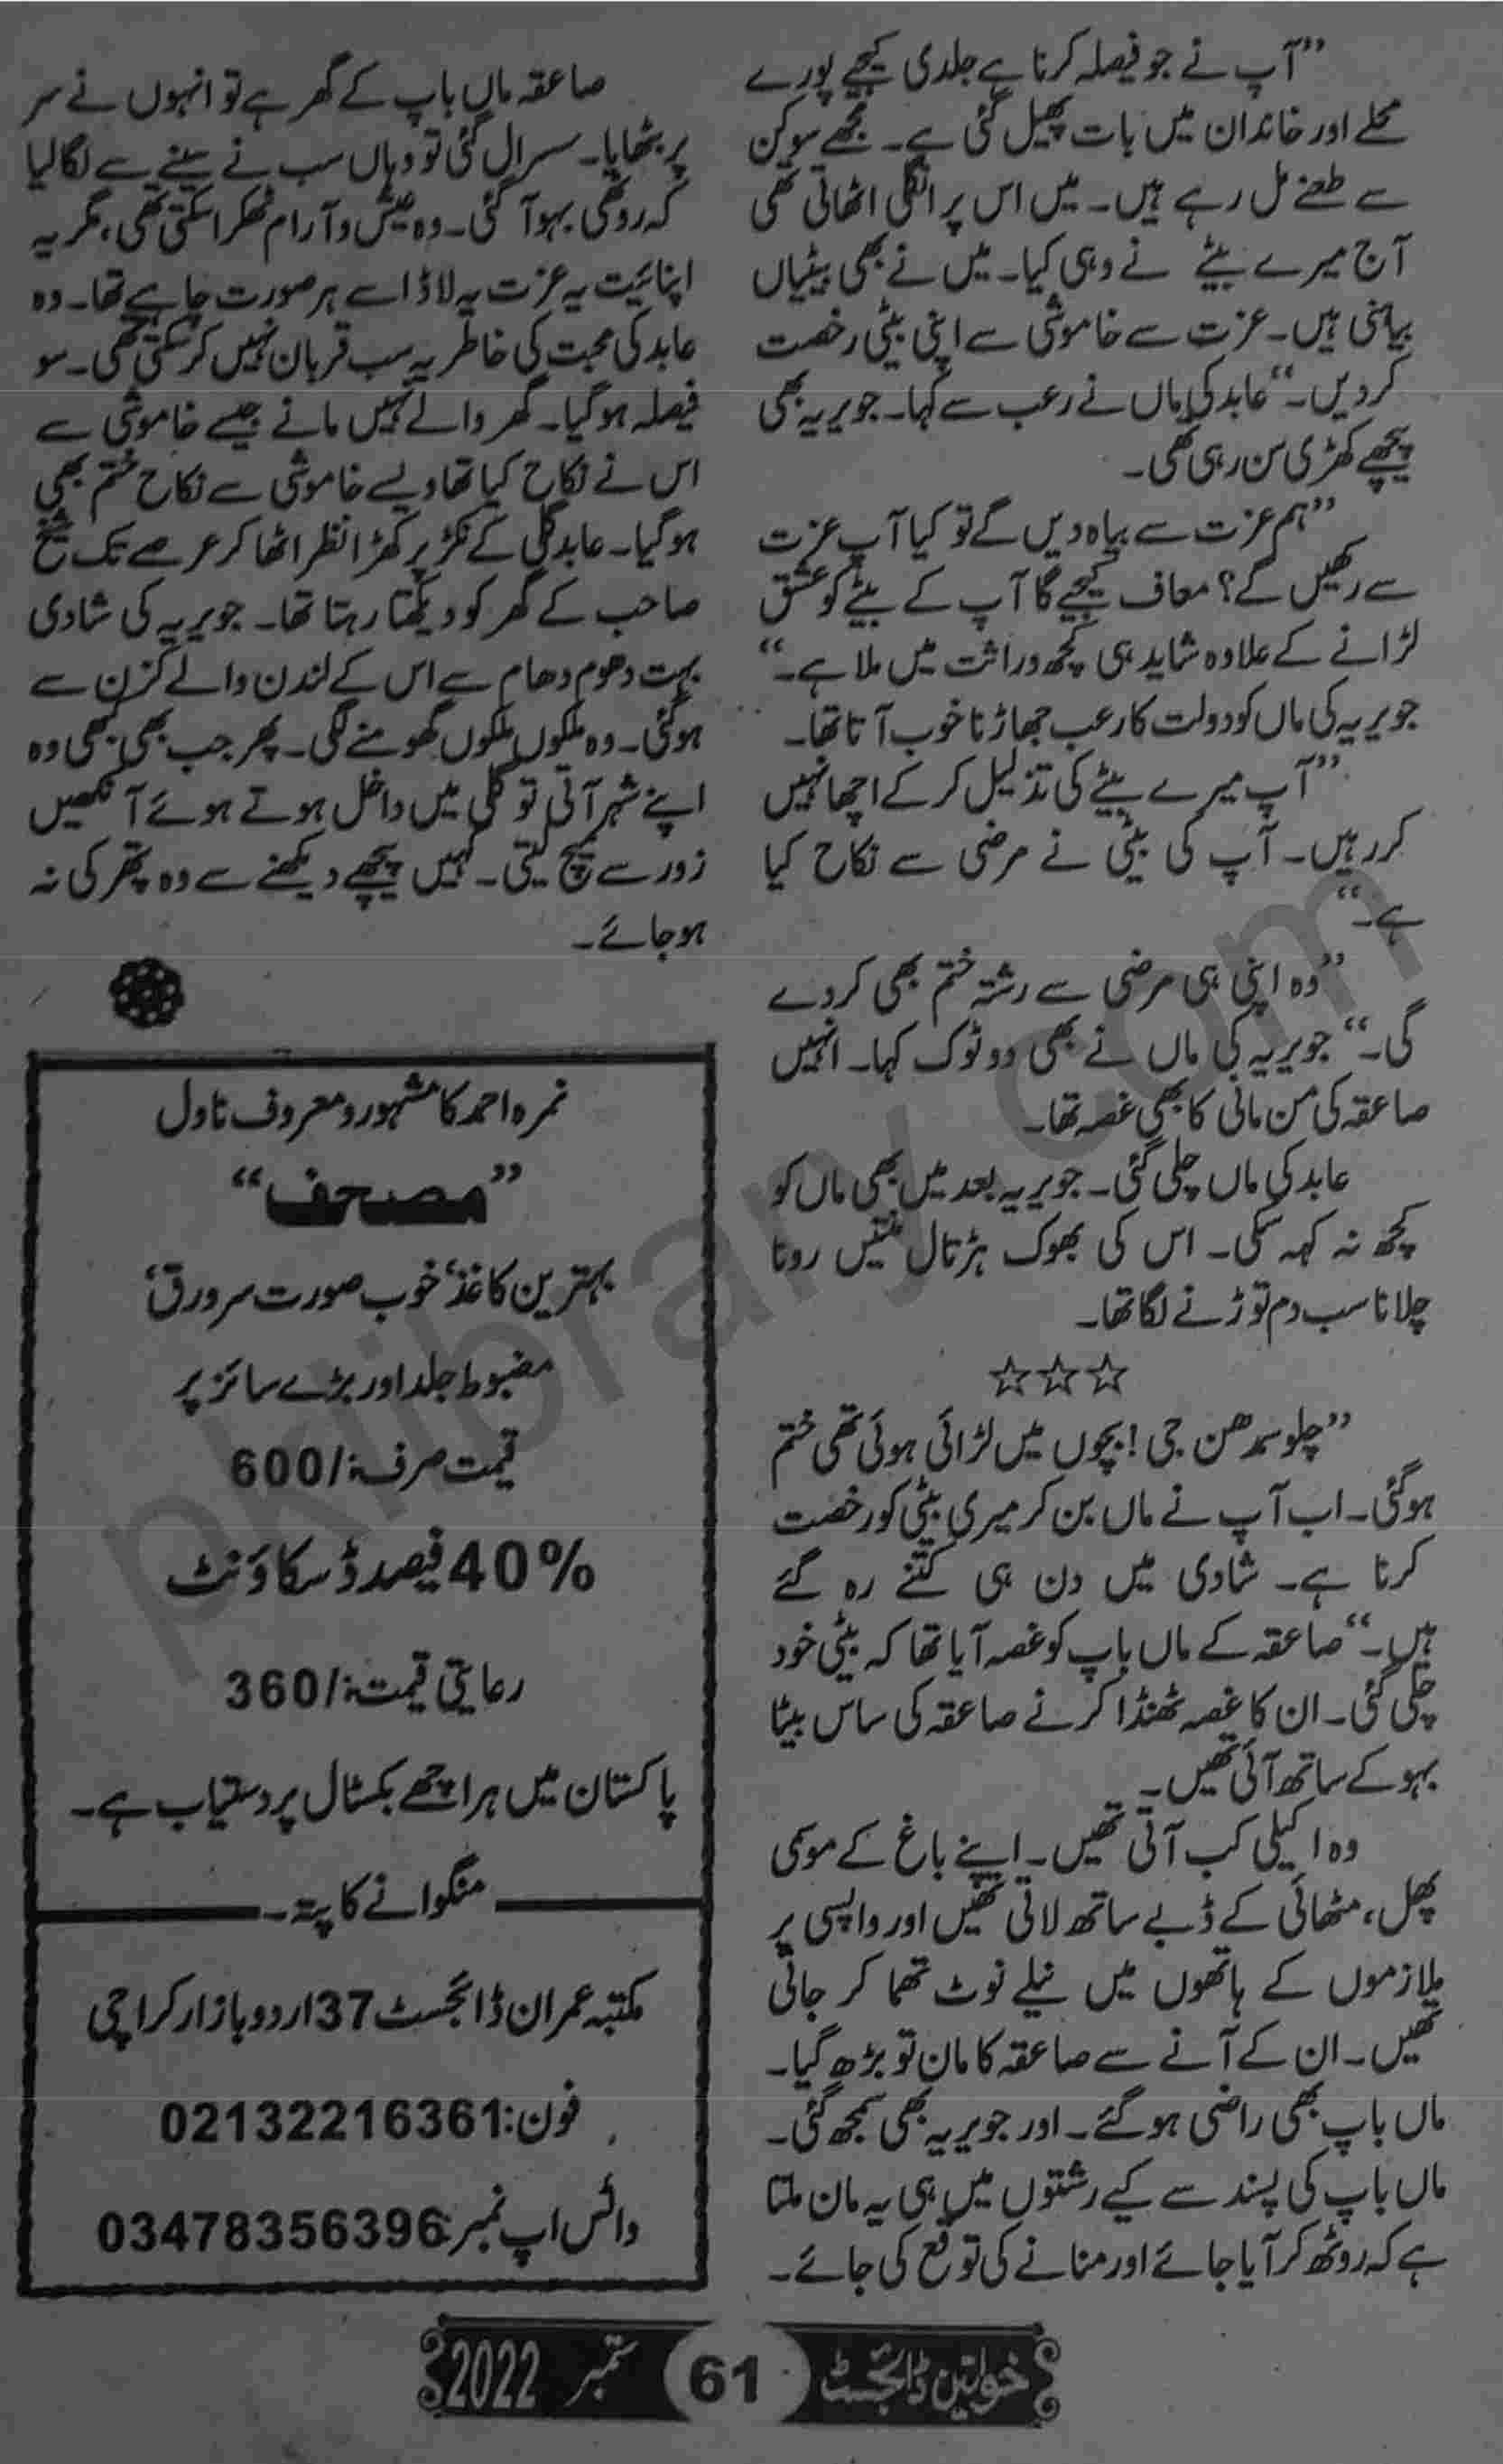 ”آپ نے جو فیصلہ کرنا ہے جلدی کیجیے پورے
محلے اور خاندان میں بات پھیل گئی ہے۔ مجھے سوکن
سے طعنے مل رہے ہیں۔ میں اس پر انگلی اٹھاتی تھی
آج میرے بیٹے نے وہی کیا۔ میں نے بھی بیٹیاں
بیاہنی ہیں۔ عزت سے خاموشی سے اپنی بیٹی رخصت
کردیں۔“ عابد کی ماں نے رعب سے کہا۔ جویریہ بھی
پیچھے کھڑی سن رہی تھی۔
”ہم عزت سے بیاہ دیں گے تو کیا آپ عزت
سے رکھیں گے؟ معاف کیجیے گا آپ کے بیٹے کو عشق
لڑانے کے علاوہ شاید ہی کچھ وراثت میں ملا ہے۔“
جویریہ کی ماں کو دولت کا رعب جھاڑنا خوب آتا تھا۔
”آپ میرے بیٹے کی تذلیل کر کے اچھا نہیں
کر رہیں۔ آپ کی بیٹی نے مرضی سے نکاح کیا
ہے۔“
”وہ اپنی ہی مرضی سے رشتہ ختم بھی کر دے
گی۔“ جویریہ کی ماں نے بھی دو ٹوک کہا۔ انہیں
صاعقہ کی من مانی کا بھی غصہ تھا۔
عابد کی ماں چلی گئی۔ جویریہ بعد میں بھی ماں کو
کچھ نہ کہہ سکی۔ اس کی بھوک ہڑتال منتیں رونا
چلانا سب دم توڑنے لگا تھا۔
☆☆☆
”چلو سمدھن جی! بچوں میں لڑائی ہوئی تھی ختم
ہوگئی۔ اب آپ نے ماں بن کر میری بیٹی کو رخصت
کرنا ہے۔ شادی میں دن ہی کتنے رہ گئے
ہیں۔“ صاعقہ کے ماں باپ کو غصہ آیا تھا کہ بیٹی خود
چلی گئی۔ ان کا غصہ ٹھنڈا کرنے صاعقہ کی ساس بیٹا
بہو کے ساتھ آئی تھیں۔
وہ اکیلی کب آتی تھیں۔ اپنے باغ کے موسمی
پھل، مٹھائی کے ڈبے ساتھ لاتی تھیں اور واپسی پر
ملازموں کے ہاتھوں میں نیلے نوٹ تھما کر جاتی
تھیں۔ ان کے آنے سے صاعقہ کا مان تو بڑھ گیا۔
ماں باپ بھی راضی ہو گئے۔ اور جویریہ بھی سمجھ گئی۔
ماں باپ کی پسند سے کیے رشتوں میں ہی یہ مان ملتا
ہے کہ روٹھ کر آیا جائے اور منانے کی توقع کی جائے۔
صاعقہ ماں باپ کے گھر ہے تو انہوں نے سر
پر بٹھایا۔ سسرال گئی تو وہاں سب نے سینے سے لگا لیا
کہ روٹھی بہو آ گئی۔ وہ عیش و آرام ٹھکرا سکتی تھی، مگر یہ
اپنائیت یہ عزت یہ لاڈ اسے ہر صورت چاہیے تھا۔ وہ
عابد کی محبت کی خاطر یہ سب قربان نہیں کر سکتی تھی۔ سو
فیصلہ ہو گیا۔ گھر والے نہیں مانے جیسے خاموشی سے
اس نے نکاح کیا تھا ویسے خاموشی سے نکاح ختم بھی
ہو گیا۔ عابد گلی کے نکڑ پر کھڑا نظر اٹھا کر عرصے تک شیخ
صاحب کے گھر کو دیکھتا رہتا تھا۔ جویریہ کی شادی
بہت دھوم دھام سے اس کے لندن والے کزن سے
ہو گئی۔ وہ ملکوں ملکوں گھومنے لگی۔ پھر جب بھی بھی وہ
اپنے شہر آتی تو گلی میں داخل ہوتے ہوئے آنکھیں
زور سے میچ لیتی۔ کہیں پیچھے دیکھنے سے وہ پتھر کی نہ
ہو جائے۔
نمرہ احمد کا مشہور و معروف ناول
”مصحف“
بہترین کاغذ، خوب صورت سرورق،
مضبوط جلد اور بڑے سائز پر
قیمت صرف :/600
40% فیصد ڈسکاؤنٹ
رعایتی قیمت :/360
پاکستان میں ہر اچھے بکسٹال پر دستیاب ہے۔
منگوانے کا پتہ۔
مکتبہ عمران ڈائجسٹ 37 اردو بازار کراچی
فون: 02132216361
واٹس اپ نمبر: 03478356396
خواتین ڈائجسٹ 61 ستمبر 2022
pklibrary.com